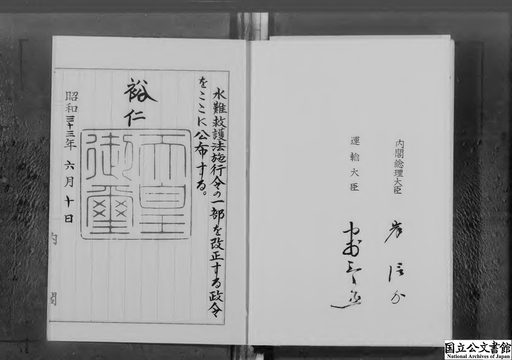 内閣総理大臣 岸信介
運輸大臣 中村三之丞
水難救護法施行令の一部を改正する政令
をここに公布する。
裕仁
天皇
御璽
昭和三十三年 六月十日
内閣
国立公文書館
National Archives of Japan